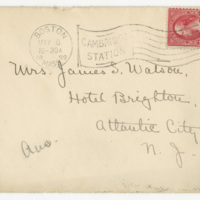 BOSTON
CAMBRIDGE
STATION
Mrs. James S. Watson,
Hotel Brighton,
Atlantic City
Ans.
N. J.